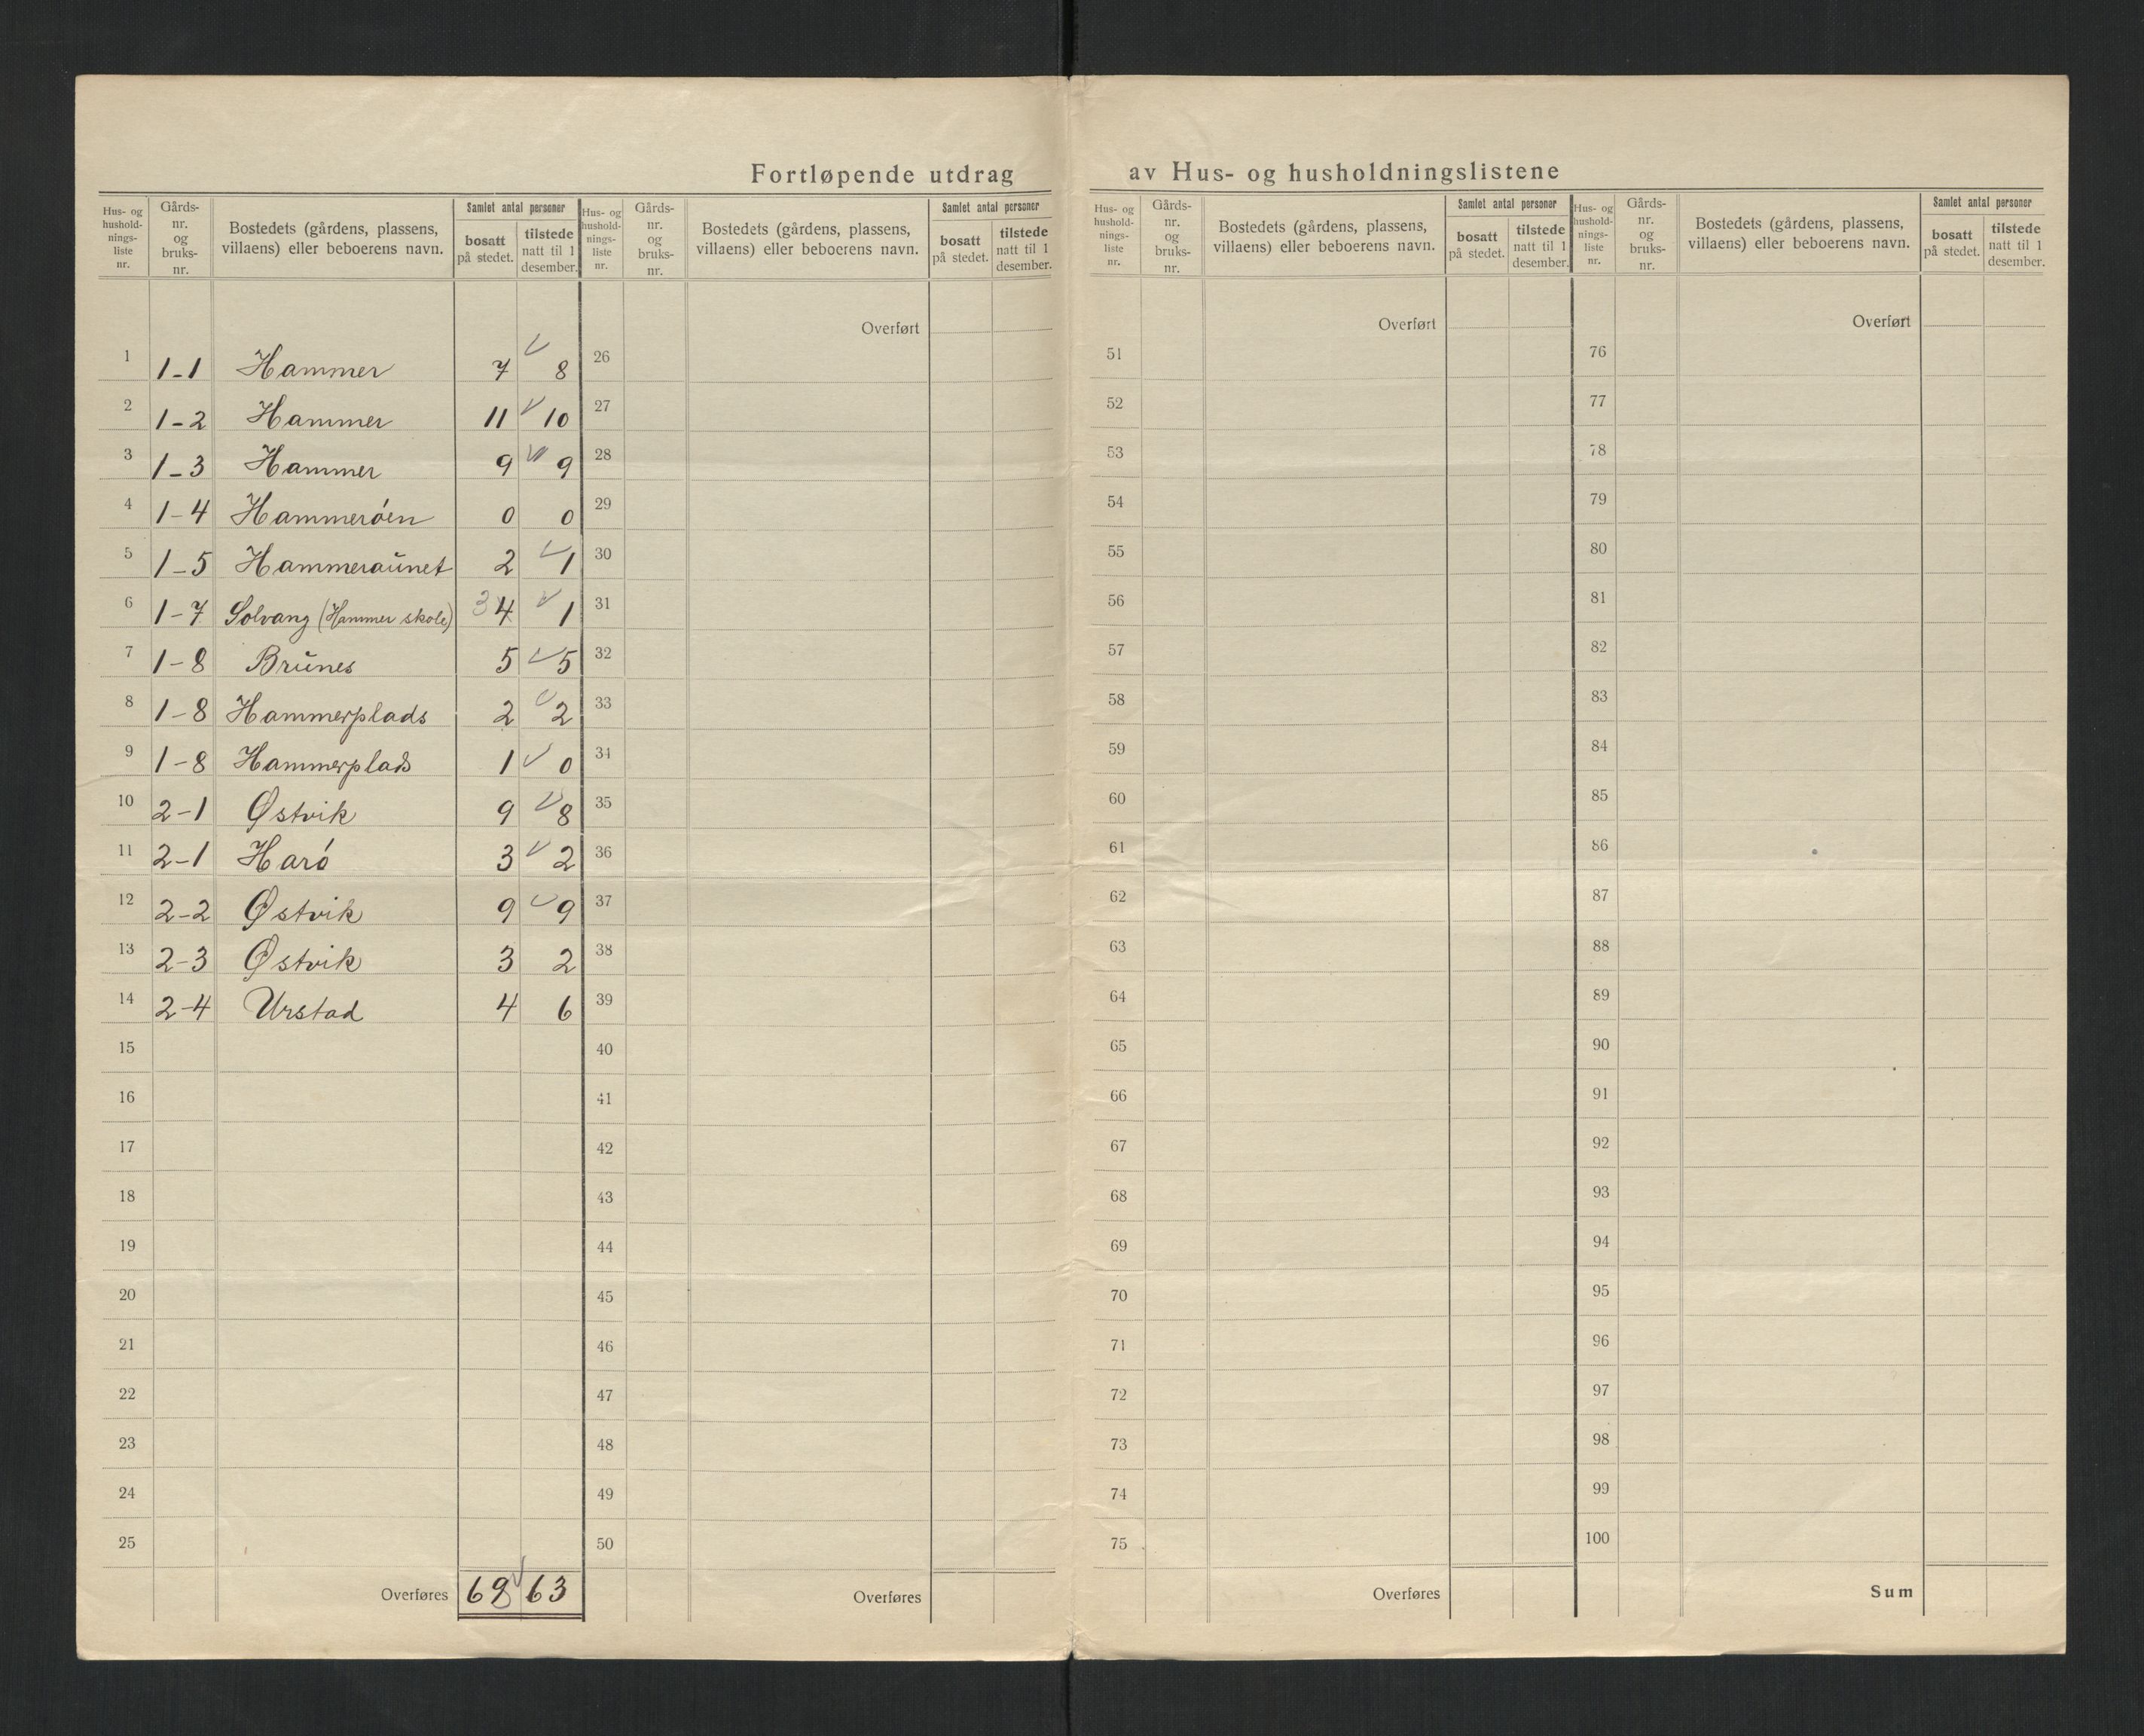 Fortløpende utdrag av Hus- og husholdningslistene
Hus- og hushold- nings- liste nr. | Gårds- nr. og bruks- nr. | Bostedets (gårdens, plassens, villaens) eller beboerens navn. | Samlet antal personer | bosatt på stedet. | tilstede natt til 1 desember.
1 1-1 Hammer 7 8
2 1-2 Hammer 11 10
3 1-3 Hammer 9 9
4 1-4 Hammerøen 0 0
5 1-5 Hammeraunet 2 1
6 1-7 Solvang (Hammer skole) 3 4 1
7 1-8 Brunes 5 5
8 1-8 Hammerplads 2 2
9 1-8 Hammerplads 1 0
10 2-1 Østvik 9 8
11 2-1 Harø 3 2
12 2-2 Østvik 9 9
13 2-3 Østvik 3 2
14 2-4 Urstad 4 6
15
16
17
18
19
20
21
22
23
24
25
Overføres 69 63
Hus- og hushold- nings- liste nr. | Gårds- nr. og bruks- nr. | Bostedets (gårdens, plassens, villaens) eller beboerens navn. | Samlet antal personer | bosatt på stedet. | tilstede natt til 1 desember.
Overført
26
27
28
29
30
31
32
33
34
35
36
37
38
39
40
41
42
43
44
45
46
47
48
49
50
Overføres
Hus- og hushold- nings- liste nr. | Gårds- nr. og bruks- nr. | Bostedets (gårdens, plassens, villaens) eller beboerens navn. | Samlet antal personer | bosatt på stedet. | tilstede natt til 1 desember.
Overført
51
52
53
54
55
56
57
58
59
60
61
62
63
64
65
66
67
68
69
70
71
72
73
74
75
Overføres
Hus- og hushold- nings- liste nr. | Gårds- nr. og bruks- nr. | Bostedets (gårdens, plassens, villaens) eller beboerens navn. | Samlet antal personer | bosatt på stedet. | tilstede natt til 1 desember.
Overført
76
77
78
79
80
81
82
83
84
85
86
87
88
89
90
91
92
93
94
95
96
97
98
99
100
Sum